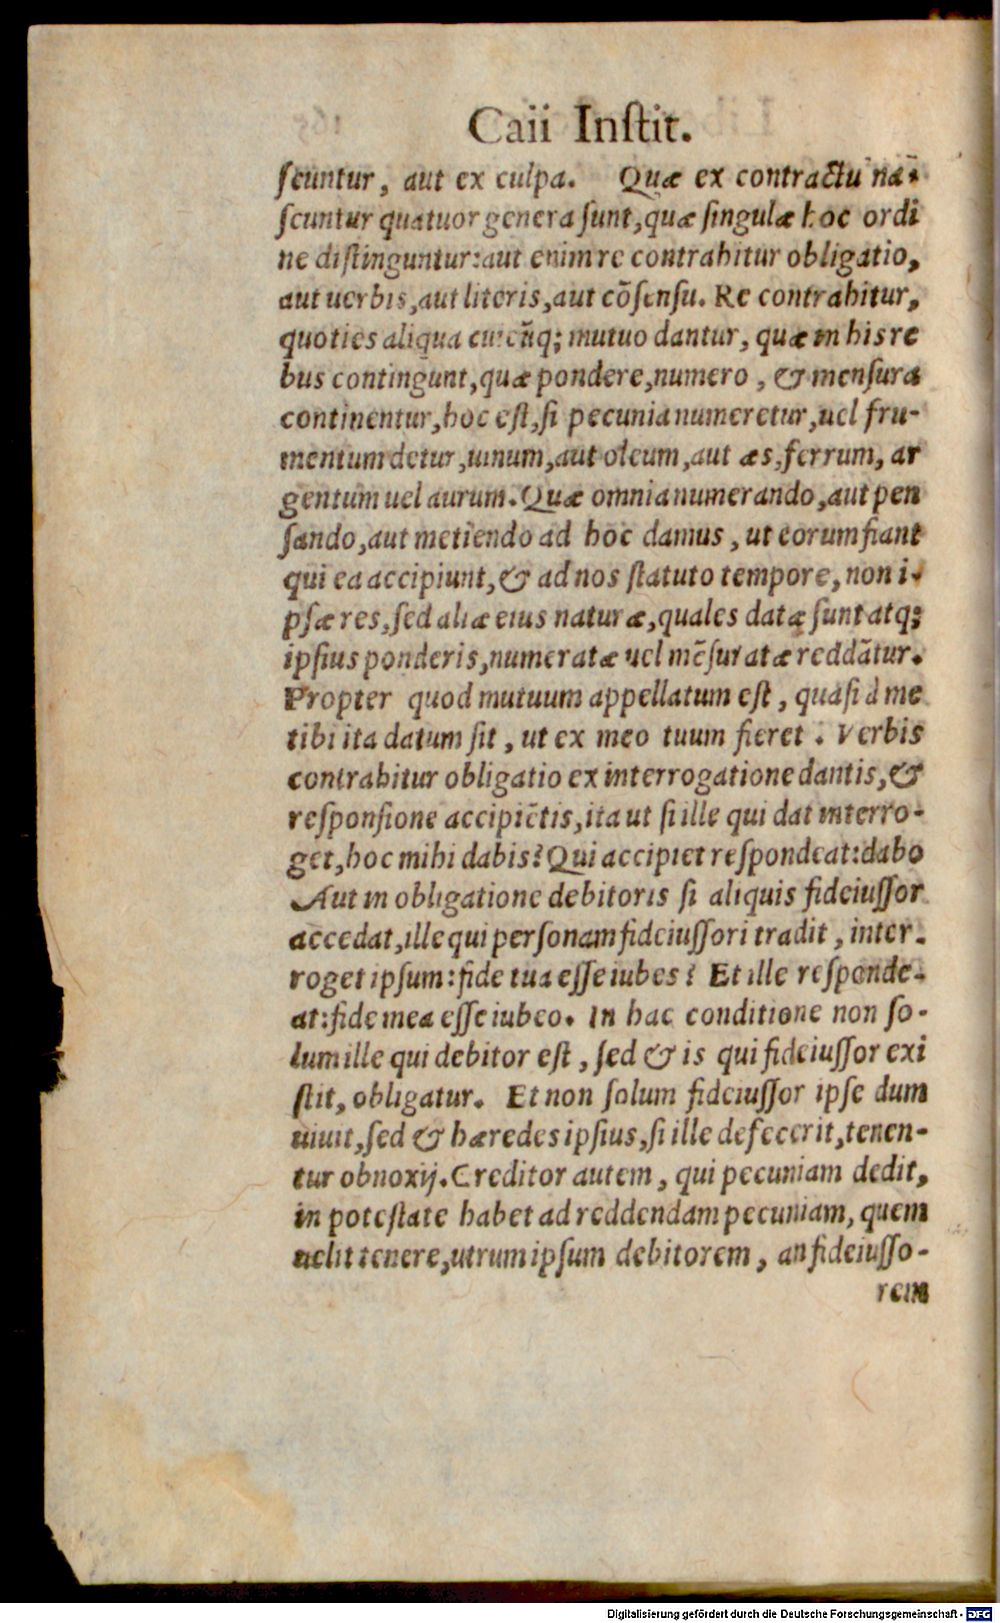 Caii Inſtit.
ſcuntur, aut ex culpa. Quæ ex contractu na-
ſcuntur quatuor genera ſunt, quæ ſingulæ hoc ordi
ne diſtinguntur: aut enim re contrahitur obligatio,
aut uerbis, aut literis, aut cõſenſu. Re contrahitur,
quoties aliqua cuicũq; mutuo dantur, quæ in his re
bus contingunt, quæ pondere, numero, & menſura
continentur, hoc eſt, ſi pecunia numeretur, uel fru-
mentum detur, uinum, aut oleum, aut æs, ferrum, ar
gentum uel aurum. Quæ omnia numerando, aut pen
ſando, aut metiendo ad hoc damus, ut eorum fiant
qui ea accipiunt, & ad nos ſtatuto tempore, non i-
pſæ res, ſed aliæ eius naturæ, quales datæ ſunt atq;
ipſius ponderis, numeratæ uel mẽſuratæ reddãtur.
Propter quod mutuum appellatum eſt, quaſi à me
tibi ita datum ſit, ut ex meo tuum fieret. Verbis
contrahitur obligatio ex interrogatione dantis, &
reſponſione accipiẽtis, ita ut ſi ille qui dat interro-
get, hoc mihi dabis? Qui accipiet reſpondeat: dabo
Aut in obligatione debitoris ſi aliquis fideiuſſor
accedat, ille qui perſonam fideiuſſori tradit, inter-
roget ipſum: fide tua eſſe iubes? Et ille reſponde-
at: fide mea eſſe iubeo. In hac conditione non ſo-
lum ille qui debitor eſt, ſed & is qui fideiuſſor exi
ſtit, obligatur. Et non ſolum fideiuſſor ipſe dum
uiuit, ſed & hæredes ipſius, ſi ille defecerit, tenen-
tur obnoxij. Creditor autem, qui pecuniam dedit,
in poteſtate habet ad reddendam pecuniam, quem
uelit tenere, utrum ipſum debitorem, an fideiuſſo-
rem
Digitalisierung gefördert durch die Deutsche Forschungsgemeinschaft - DFG